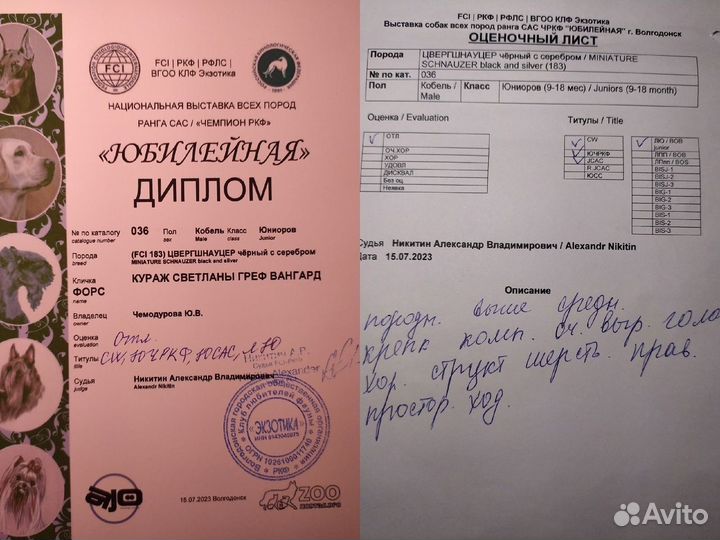 FCI
FCI | РКФ | РФЛС |
ВГОО КЛФ Экзотика
НАЦИОНАЛЬНАЯ ВЫСТАВКА ВСЕХ ПОРОД
РАНГА САС / «ЧЕМПИОН РКФ»
«ЮБИЛЕЙНАЯ»
ДИПЛОМ
№ по каталогу 036 Пол Кобель Класс Юниоров
catalogue number sex Male class Junior
Порода (FCI 183) ЦВЕРГШНАУЦЕР чёрный с серебром
breed MINIATURE SCHNAUZER black and silver
Кличка КУРАЖ СВЕТЛАНЫ ГРЕФ ВАНГАРД
ФОРС
name
Владелец Чемодурова Ю.В.
owner
Оценка Отл.
evaluation
Титулы CW, ЮЧРКФ, ЮСАС, ЛЮ
title
Никитин А.В.
Alexander
Судья Никитин Александр Владимирович
judge Alexandr Nikitin
Волгодонская городская общественная организация
Клуб любителей фауны
«ЭКЗОТИКА»
ИНН 6143040875
ОГРН 1026100011740
РКФ
15.07.2023 Волгодонск
ZOO
FCI | РКФ | РФЛС | ВГОО КЛФ Экзотика
Выставка собак всех пород ранга САС ЧРКФ "ЮБИЛЕЙНАЯ" г. Волгодонск
ОЦЕНОЧНЫЙ ЛИСТ
Порода ЦВЕРГШНАУЦЕР чёрный с серебром / MINIATURE
SCHNAUZER black and silver (183)
№ по кат. 036
Пол Кобель / Male Класс Юниоров (9-18 мес) / Juniors (9-18 month)
Оценка / Evaluation Титулы / Title
ОТЛ
ОЧ.ХОР
ХОР
УДОВЛ
ДИСКВАЛ
Без оц
Неявка
CW
ЮЧРКФ
JCAC
R JCAC
ЮСС
ЛЮ / BOB
junior
ЛПП / BOB
ЛПпп / BOS
BISJ-1
BISJ-2
BISJ-3
BIG-1
BIG-2
BIG-3
BIS-1
BIS-2
BIS-3
Судья Никитин Александр Владимирович / Alexandr Nikitin
Дата 15.07.2023
Описание
породн. выше средн.
крепк комп. оч. выр. гола
хор. структ шерсть. прав.
простор. ход.
Avito